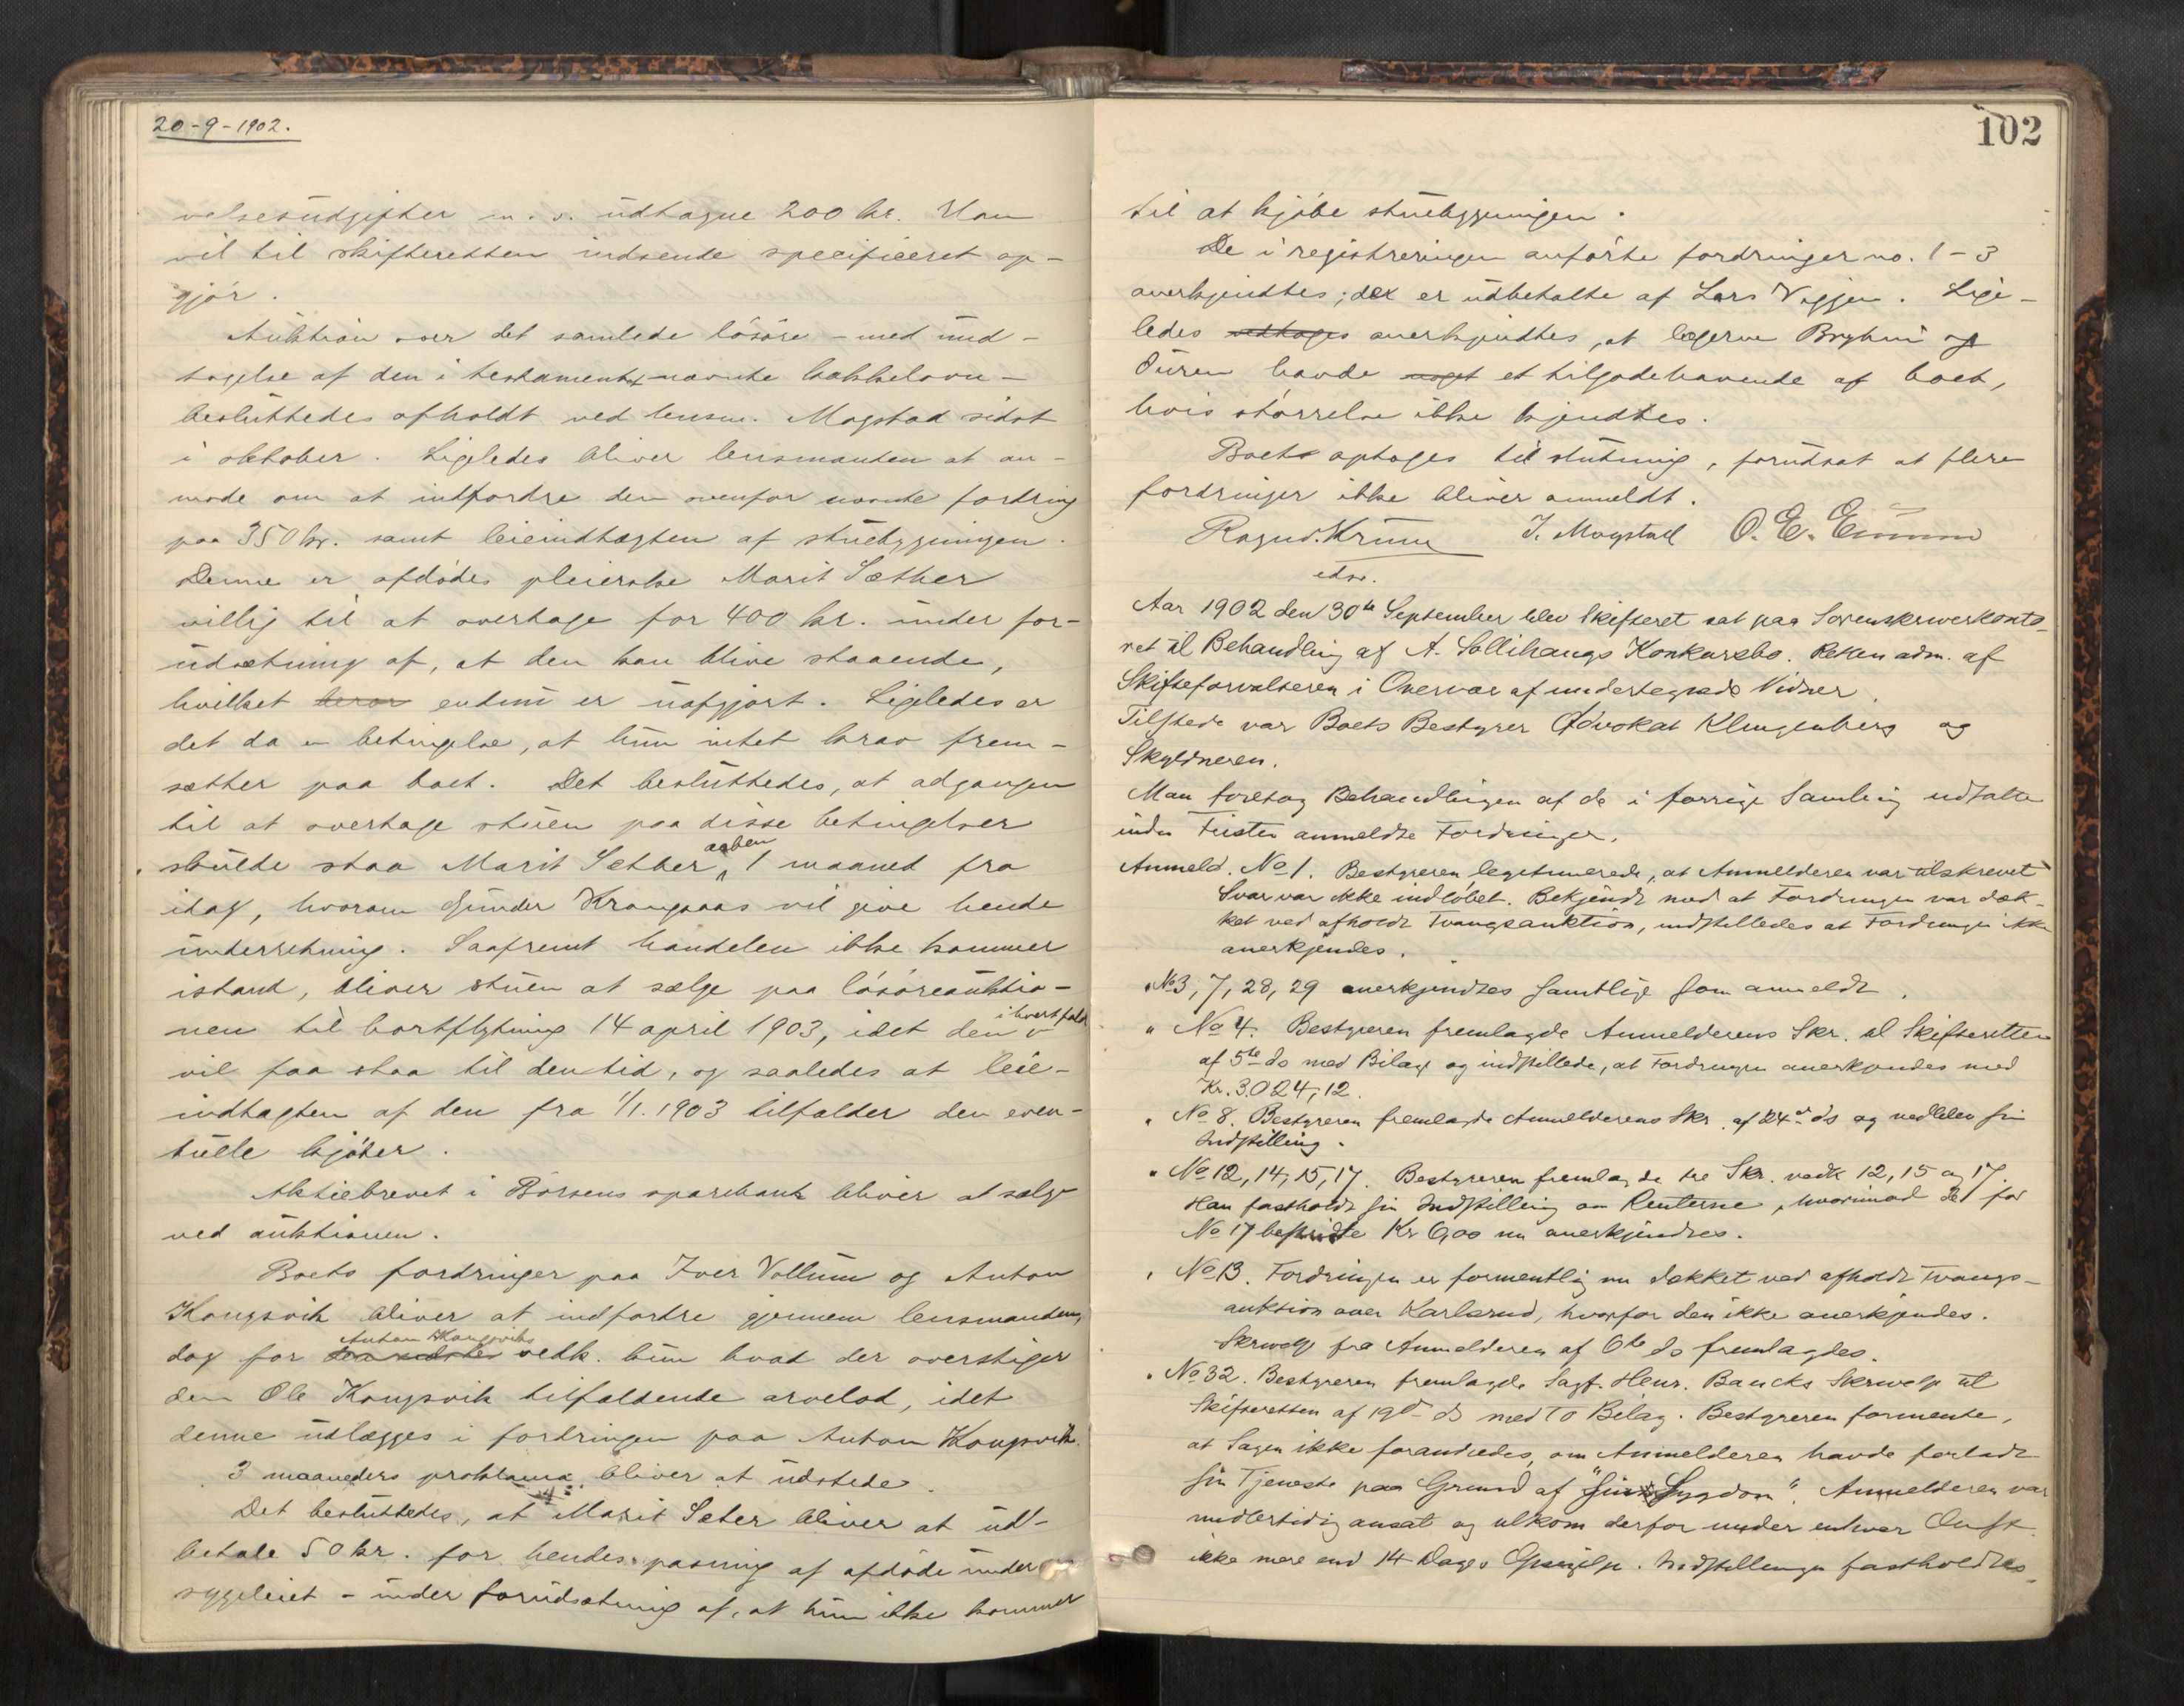 20-9-1902.
velsesudgifter m. v. udtagne 200 kr. Han
vil til skifteretten indsende specificeret op-
gjør.
Auktion over det samlede løsøre - med und-
tagelse af den i testamentet nævnte kakkelovn -
besluttedes afholdt ved lensm. Mogstad sidst
i oktober. Ligeledes bliver lensmanden at an-
mode om at indfordre den ovenfor nævnte fordring
paa 350 kr. samt leieindtægten af stuebygningen.
Denne er afdødes pleierske Marit Sæther
villig til at overtage for 400 kr. under for-
udsætning af, at den kan blive staaende,
hvilket beror endnu er uafgjort. Ligeledes er
det da en betingelse, at hun intet krav frem-
sætter paa boet. Det besluttedes, at adgangen
til at overtage stuen paa disse betingelser
skulde staa Marit Sæther aaben 1 maaned fra
idag, hvorom Gunder Krangsaas vil give hende
underretning. Saafremt handelen ikke kommer
istand, bliver stuen at sælge paa løsøreauktio-
nen til bortflytning 14 april 1903, idet den i hvert fald
vil faa staa til den tid, og saaledes at leie-
indtægten af den fra 1/1. 1903 tilfalder den even-
tuelle kjøber.
Aktiebrevet i Børsens sparebank bliver at sælge
ved auktionen.
Boets fordringer paa Iver Vollum og Anton
Kongsvik bliver at indfordre gjennem lensmanden,
dog for den sidstes Anton Kongsviks vedk. kun hvad der overstiger
den Ole Kongsvik tilfaldende arvelod, idet
denne udlægges i fordringen paa Anton Kongsvik.
3 maaneders proklama bliver at udstede.
Det besluttedes, at Marit Sæter bliver at ud-
betale 50 kr. for hendes pasning af afdøde under
sygeleiet - under forudsætning af, at hun ikke kommer
102
til at kjøbe stuebygningen.
De i registreringen anførte fordringer no. 1 - 3
anerkjendtes; der er udbetalte af Lars Viggen. Lige-
ledes vedtoges anerkjendtes, at lægerne Bryhni og
Duren havde noget et tilgodehavende af boet,
hvis størrelse ikke kjendtes.
Boet optages til slutning, forudsat at flere
fordringer ikke bliver anmeldt.
J. Mogstad
edsv.
Aar 1902 den 30te September blev Skifteret sat paa Sorenskriverkonto-
ret til Behandling af A. Sollihaugs Konkursbo. Retten adm. af
Skifteforvalteren i Overvær af undertegnede Vidner.
Tilstede var Boets Bestyrer Advokat Klingenberg og
Skyldneren.
Man foretog Behandlingen af de i forrige Samling udsatte
inden Fristen anmeldte Fordringer.
Anmeld. No 1. Bestyreren legitimerede, at Anmelderen var tilskrevet
Svar var ikke indløbet. Bekjendt med at Fordringen var dæk-
ket ved afholdt Tvangsauktion, indstilledes at Fordringen ikke
anerkjendes.
" No 3, 7, 28, 29 anerkjendtes samtlige som anmeldt.
" No 4. Bestyreren fremlagde Anmelderens Skr. til Skifteretten
af 5te ds med Bilag og indstillede, at Fordringen anerkjendes med
Kr. 3024,12.
" No 8. Bestyreren fremlagde Anmelderens Skr. af 24de ds og vedblev sin
Indstilling.
" No 12, 14, 15, 17. Bestyreren fremlagde tre Skr. vedk 12, 15 og 17.
Han fastholdt sin Indstilling om Renterne, hvorimod det for
No 17 bestridte Kr 6,00 nu anerkjendtes.
" No 13. Fordringen er formentlig nu dækket ved afholdt Tvangs-
auktion over Karlsrud, hvorfor den ikke anerkjendes.
Skrivelse fra Anmelderen af 6te ds fremlagdes.
" No 32. Bestyreren fremlagde Sagf. Henr. Baucks Skrivelse til
Skifteretten af 19de ds med to Bilag. Bestyreren formente,
at Sagen ikke forandredes, om Anmelderen havde forladt
sin Tjeneste paa Grund af "Sygdom". Anmelderen var
midlertidig ansat og tilkom derfor under enhver Omst.
ikke mere end 14 Dages Opsigelse. Indstillingen fastholdtes.